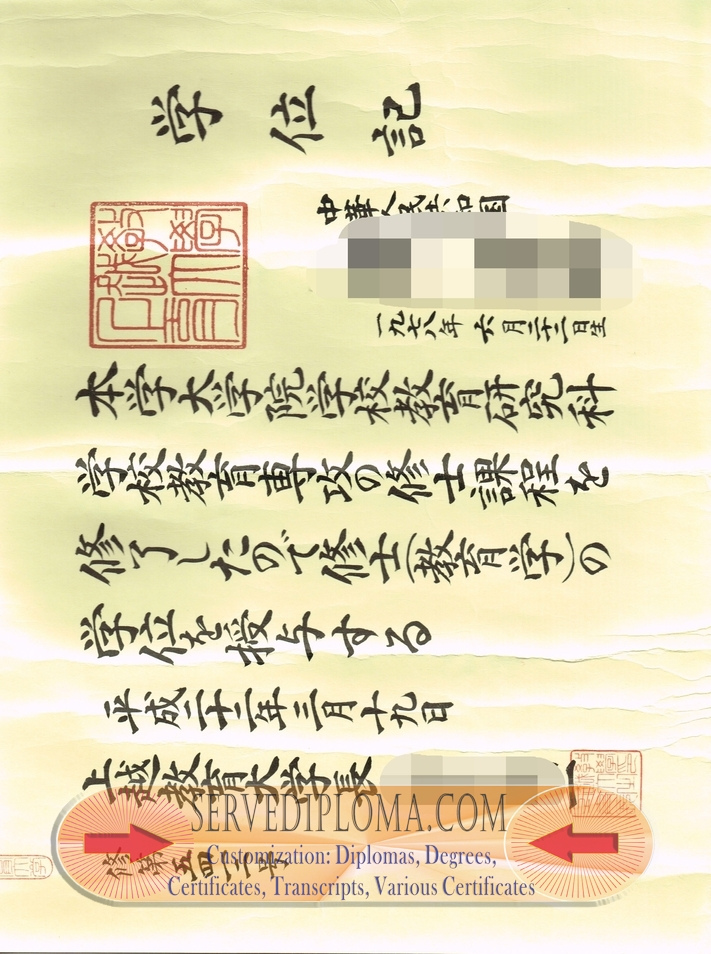 学位記
中華人民共和国
一九七八年 六月二十二日生
本学大学院学校教育研究科
学校教育専攻の修士課程を
修了したので修士(教育学)の
学位を授与する
平成二十二年三月十九日
上越教育大学長
SERVEDIPLOMA.COM
修第五四二二号
Customization: Diplomas, Degrees,
Certificates, Transcripts, Various Certificates